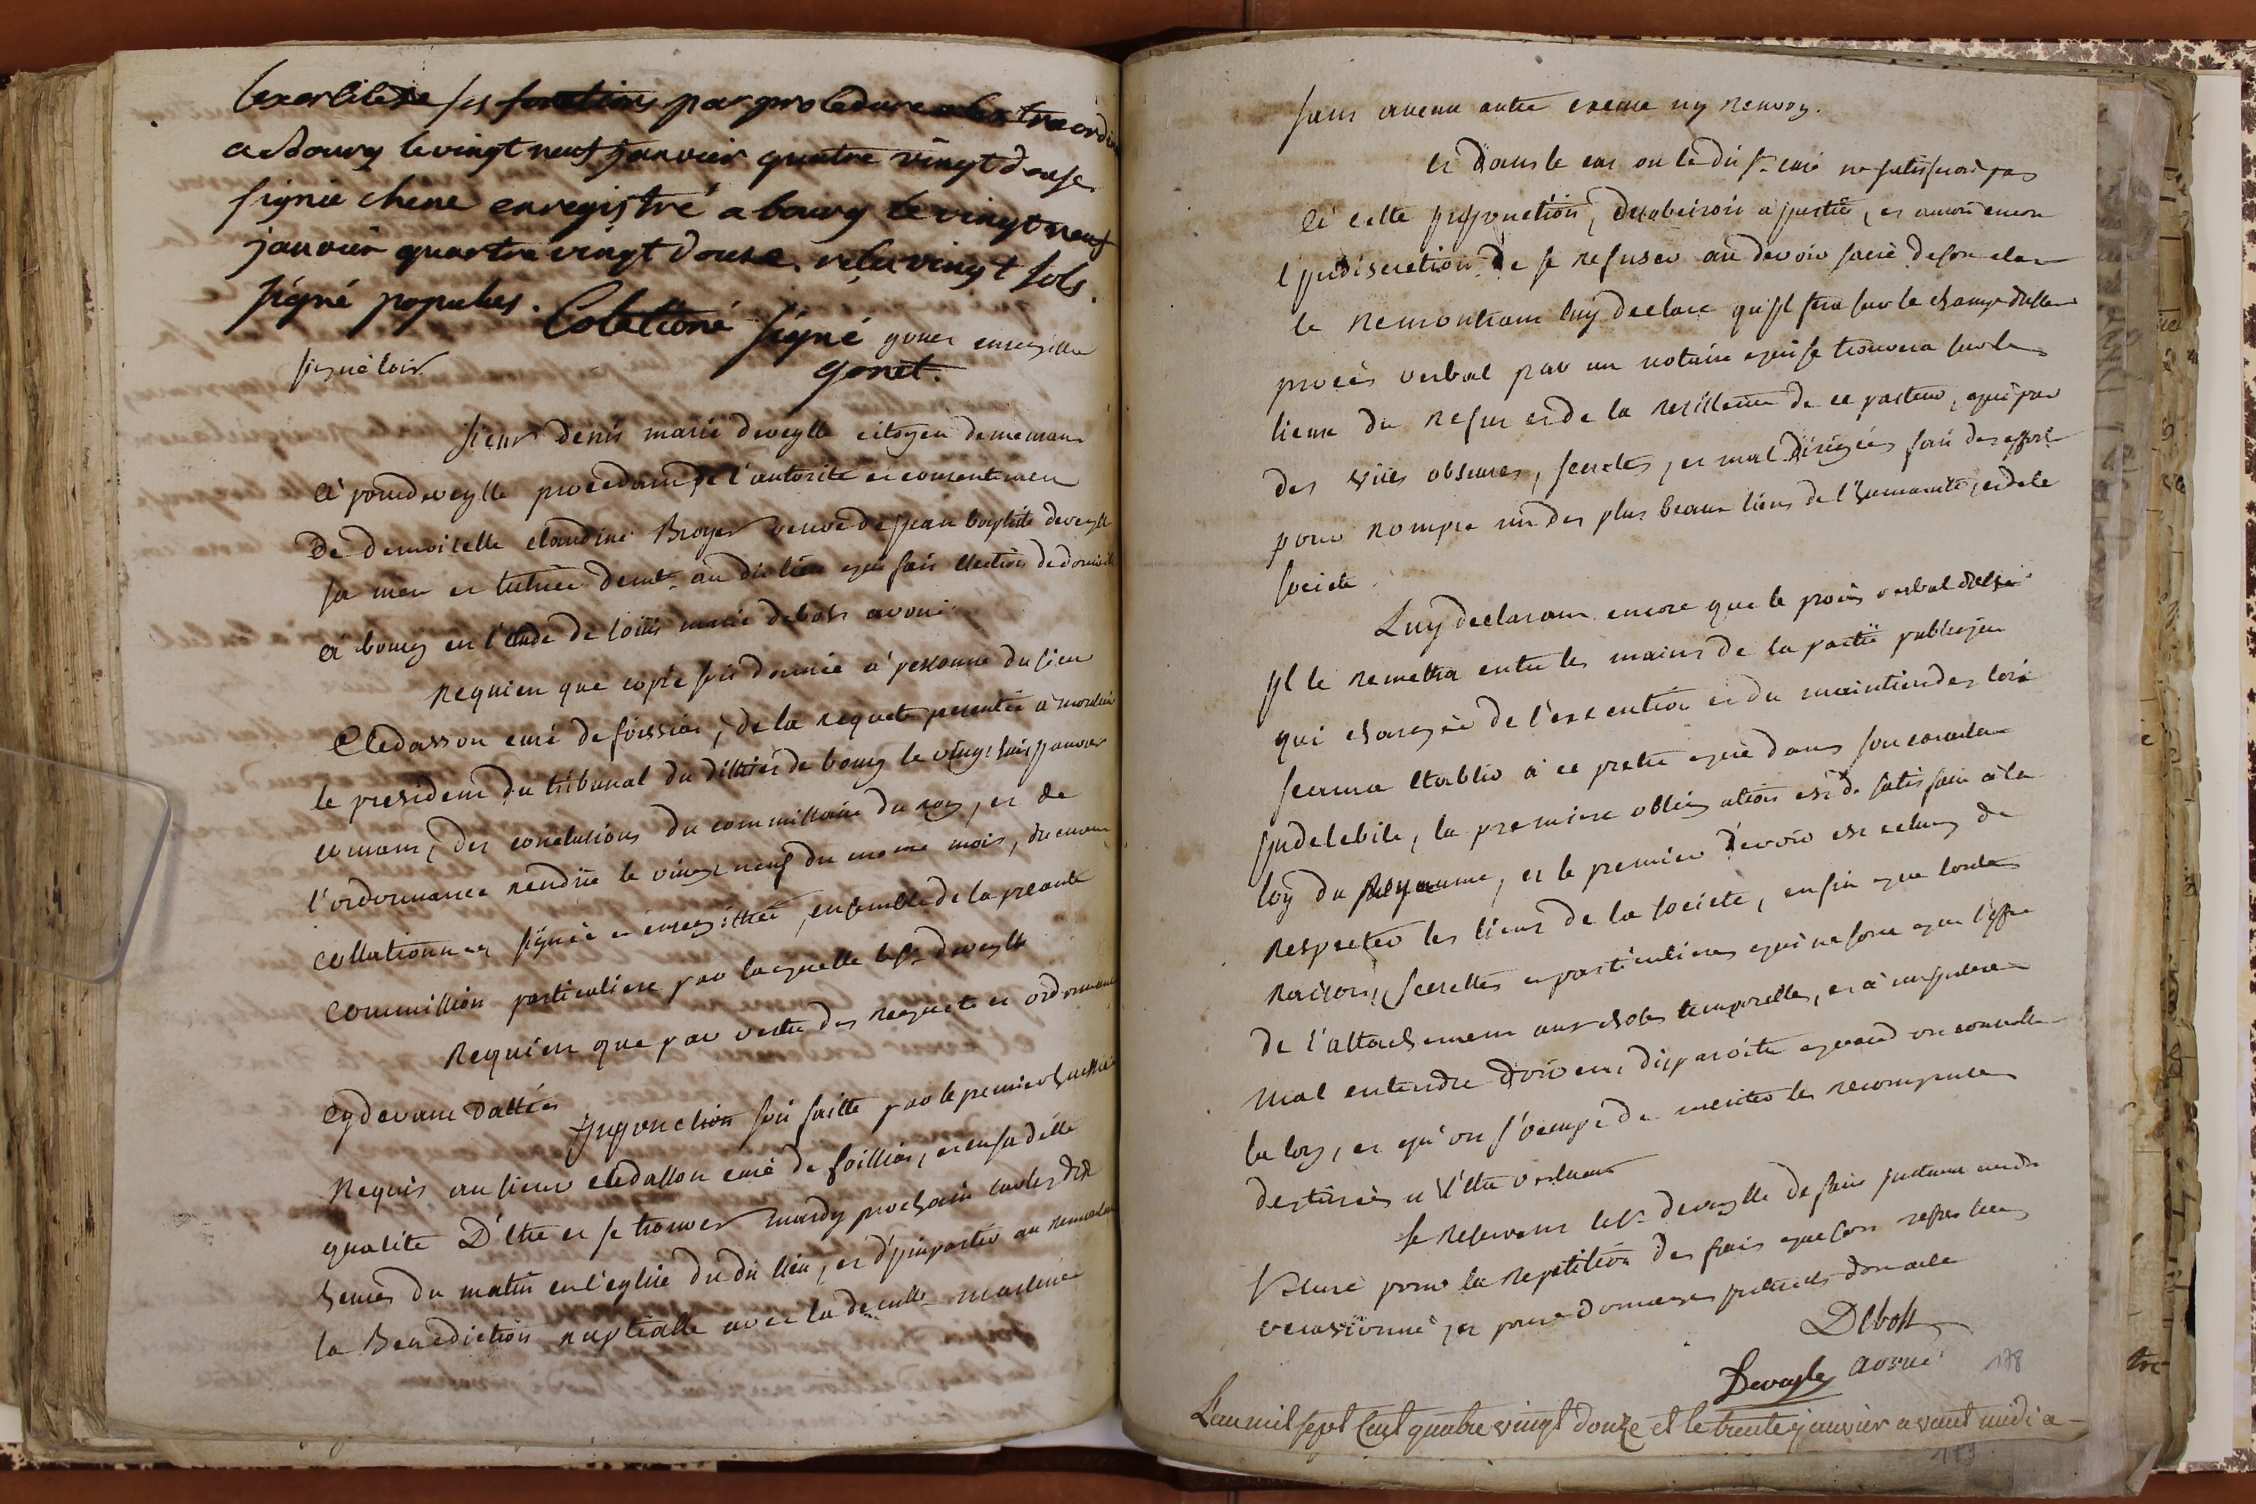 lexerlile de ses fonctions par proledure extraordi
a Bourg le vingt neuf janvier quatre vingt douse
signié chene enregistré a bourg le vingt neuf
janvier quartre vingt douse relu vingt sols.
signé populus. Colationé signé gonet enregistre
signé loir gonet.
sieur denis marie deveylle citoyen demeurant
à pondeveylle procedant de l'autorité et consentement
De demoiselle claudine Broyer veuve de jean baptiste deveylle
sa mere et tutrice demt. au dit lieu qui fait election de domicile
à bourg en l'étude de loüis marie debost avoué
Requiert que copie soit donnée à personne du sieur
Cledasson curé de foissiat, de la requete presentée à monsieur
le president du tribunal du district de bourg le vingt huit janvier
courant, des conclusions du commissaire du roy, et de
l'ordonnance rendüe le vingt neuf du meme mois, duement
collationnée, signée et enregistrée, ensemble de la presente
commission particuliere par laquelle le sr. deveylle
Requiert que par vertu des requete et ordonnance
cy devant dattées
Injonction soit faitte par le premier huissier
Requis au sieur cledasson curé de foissiat, et en sa dite
qualité D'être et se trouver mardy prochain sur les dix
heures du matin en l'eglise du dit lieu, et d'y impartir au remontrant
la Benediction nuptialle avec la demlle. martine
sans aucune autre excuse ny renvoy.
Et Dans le cas ou le dit sr. curé ne satisfairoit pas
à cette injonction, desobeiroit à justice, et auroit encore
l'indiscretion de se refuser au devoir sacré de son etat
le remontrant luy declare qu'il fera sur le champ dresser
procès verbal par un notaire qui se trouvera sur les
lieux du refus et de la resistance de ce pasteur, qui par
des viües obscures, secretes, et mal dirigées fait des efforts
pour rompre un des plus beaux liens de l'humanité, et de la
societe.
Luy declarant encore que le procès verbal dressé
jl le remettra entre les mains de la partie publique
qui chargée de l'execution et du maintien des loix
scaura etablir à ce pretre que dans son caractere
jndelebile, la premiere obligation est de satisfaire à la
loy du Royaume, et le premier devoir est celuy de
respecter les liens de la societe, enfin que toutes
raisons, secrettes et particulieres qui ne sont que l'effet
de l'attachement aux choses temporelles, et à un interet
mal entendu doivent disparoitre quand on connoit
la loy, et qu'on s'occupe de meriter les recompenses
destinées à l'être vertueux
se reservant le sr. deveylle de faire
pour la repetition des frais que son refus
occasionné, et pour domages interets dont acte
Debost
Deveyle avoué
178
L'an mil sept Cent quatre vingt douze et le trente janvier avant midi a
179